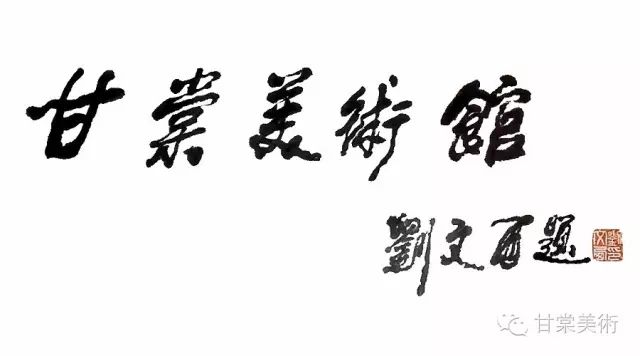 甘棠美術館
劉文西題
甘棠美術